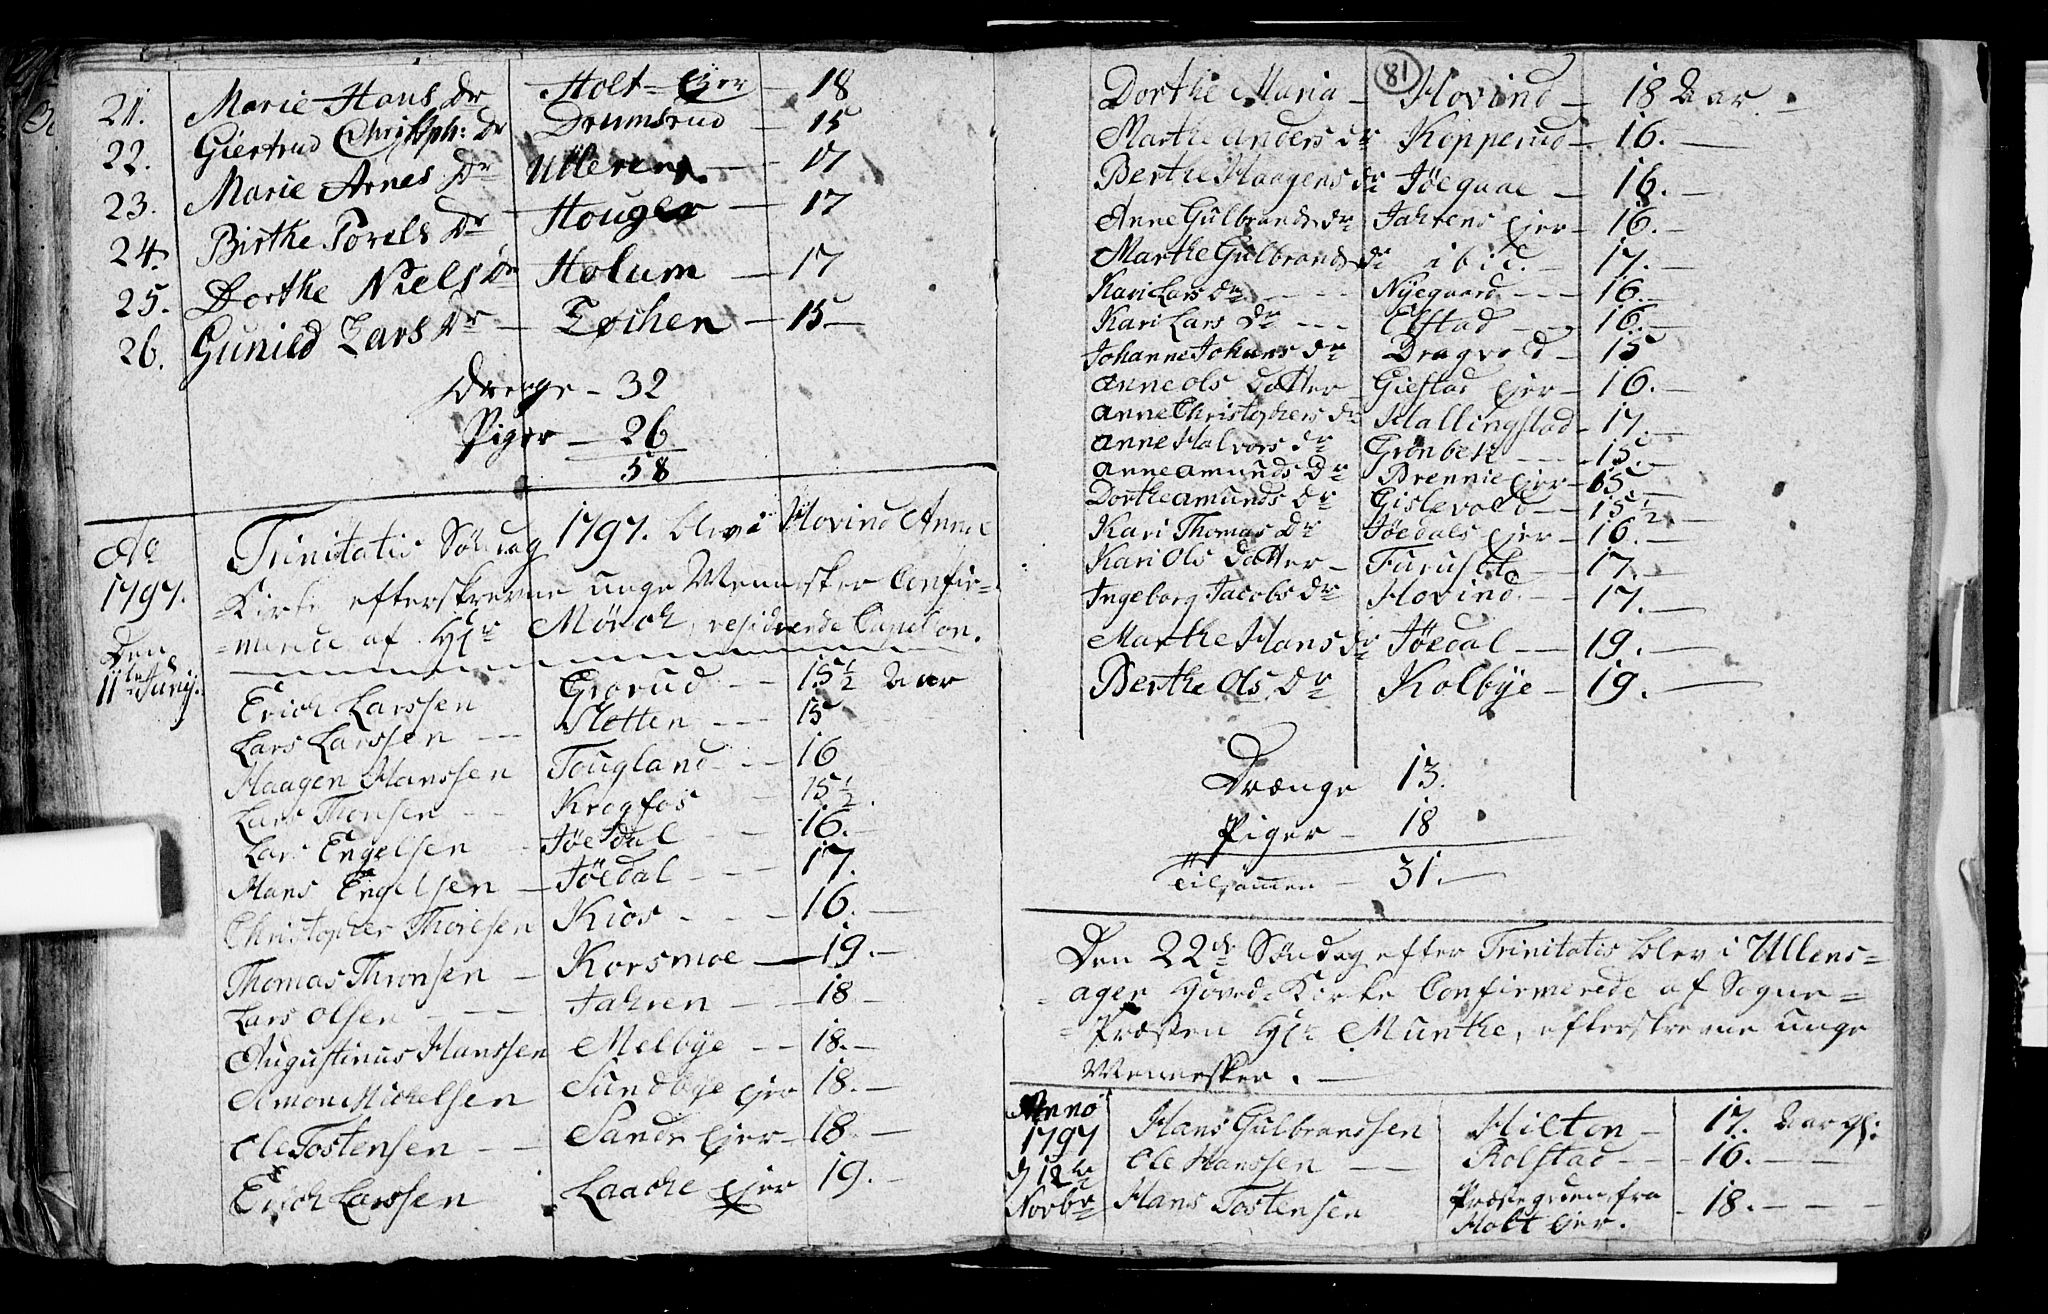 21. Marie Hans Dr Holt-Eier - 18
22. Giertrud Christoph: Dr Drumsrud - 15
23. Marie Arnes Dr Ulleren - 17
24. Birthe Torels Dr Houger - 17
25. Dorthe Niels Dr Holum - 17
26. Gunild Lars Dr - Løchen - 15 -
Drenge - 32
Piger - 26
58
Ao 1797. Den 11te Junij.
Trinitatis Söndag 1797. blev i Hovind Annex
Kirke efterskrevne unge Mennesker Confir-
merede af Hr Mörch, residerende Capellan.
Erich Larssen Grorud - - 15 1/2 Aar
Lars Larssen - - Slotten - - - 15
Haagen Hanssen Tougland - - 16
Lars Thorsen - - Krogfos - 15 1/2.
Lars Engelsen - Jöedal - - 16. -
Hans Engelsen - Jöedal - - - 17.
Christopher Thoresen Kios - - - 16. -
Thomas Thronsen - Korsmoe - 19. -
Lars Olsen - - - Jahren - - - 18 -
Augustinus Hanssen Melbÿe - - 18. -
Simon Michelsen Sundbÿe Eier 18. -
Ole Tostensen - - Sandr Eier - 18. -
Erich Larssen Laache Eier 19. -
81
Dorthe Maria - Hovind - 18 Aar -
Marthe Anders Dr Kopperud - 16. -
Berthe Haagens Dr Jöegaae - 16. -
Anne Gulbrands Dr Jahrens Eier - 16. -
Marthe Gulbrands Dr ibid. - 17. -
Kari Lars Dr - - - Nÿegaard - - - 16. -
Kari Lars Dr - - - Elstad - - - 16. -
Johanne Johans Dr Dragvold - 15 -
Anne Ols Datter Giestad Eier - 16. -
Anne Christophers Dr Hallingstad - 17. -
Anne Halvors Dr Grönbek - - - 15. -
Anne Amunds Dr Brennie Eier - 15 -
Dorthe Amunds Dr Gislevold - - 15 1/2 -
Kari Thomas Dr Jöedals Eier - 16. -
Kari Ols Datter - Furuset - - 17. -
Ingeborg Jacobs Dr Hovind. - - 17. -
Marthe Hans Dr Jöedal - - 19. -
Berthe Ols Dr Kolbÿe - 19. -
Drænge 13.
Piger - 18
Tilsammen - 31. -
Den 22de Söndag efter Trinitatis blev i Ullens-
ager Hoved-Kirke Confirmerede af Sogne-
Præsten Hr Munthe, efterskrevne unge
Mennesker. -
Anno 1797 d 12te Novbr
Hans Gulbranssen Hilton - 17. Aar gl:
Ole Hanssen - - Rolstad - - 16. - -
Hans Tostensen Præstegden fra Holt Eier. - 18. - - -